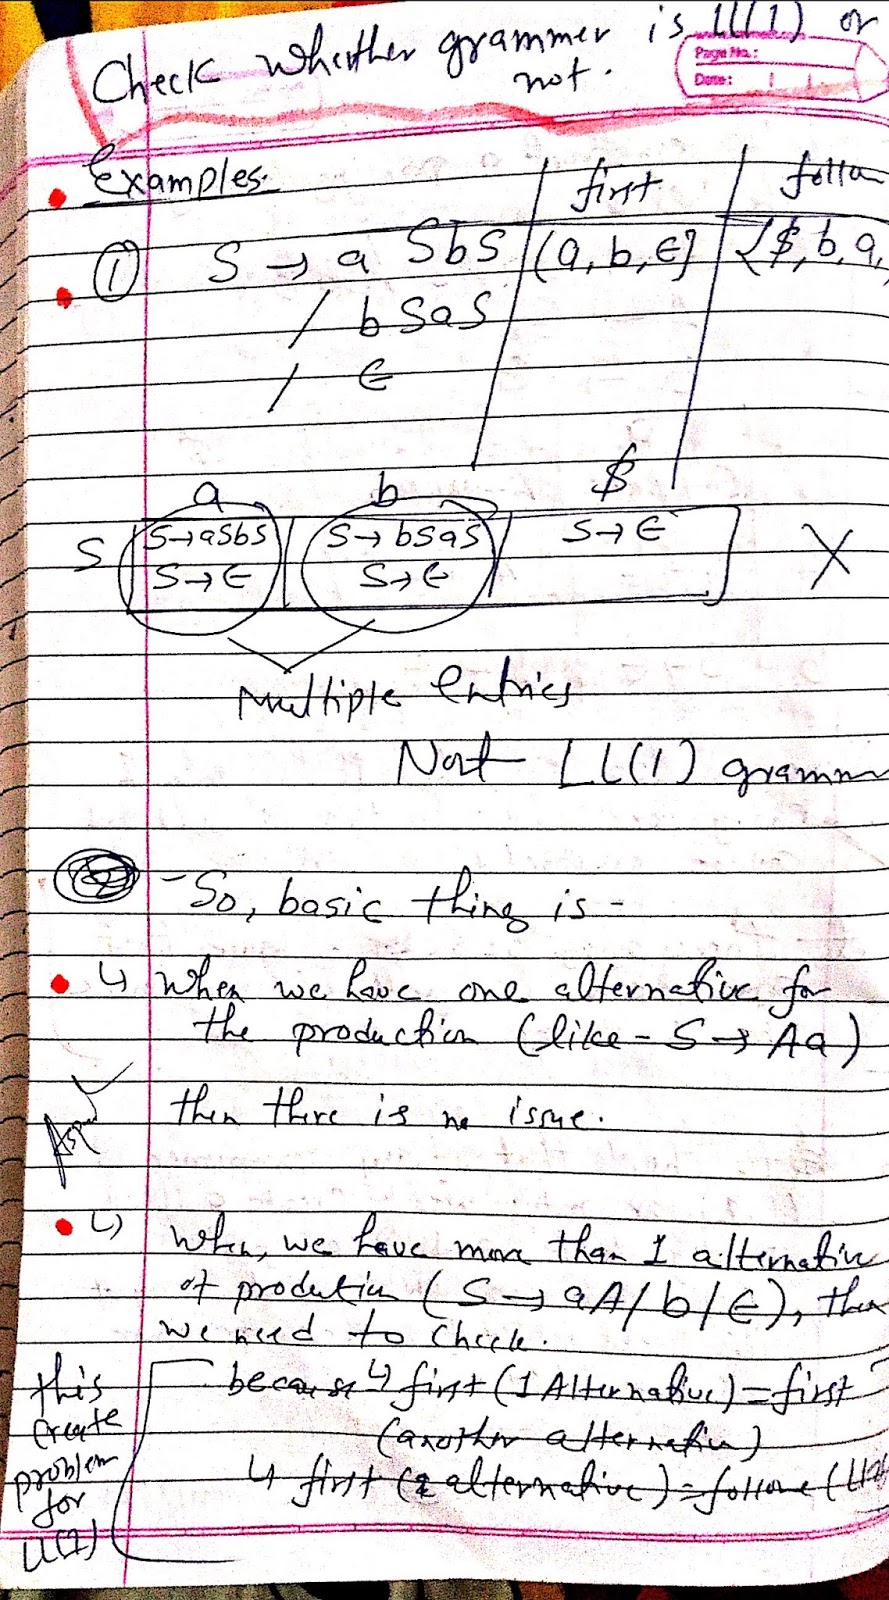 Check whether grammer is LL(1) or
not.
Page No.:
Date:
Examples.
first
follow
① S → a SbS {a, b, ∈} {$, b, a,
/ bSaS
/ ∈
a b $
S S→aSbS S→bSaS S→∈ X
S→∈ S→∈
Multiple Entries
Not LL(1) gramm
- So, basic thing is -
↳ When we have one alternative for
the production (like - S → Aa)
then there is no issue.
↳ When, we have more than 1 alternative
of prodution (S → aA/b/∈), then
we need to check.
because ↳ first (1 Alternative) = first
(another alternative)
↳ first (alternative) = follow (LH
this
create
problem
for
LL(1)